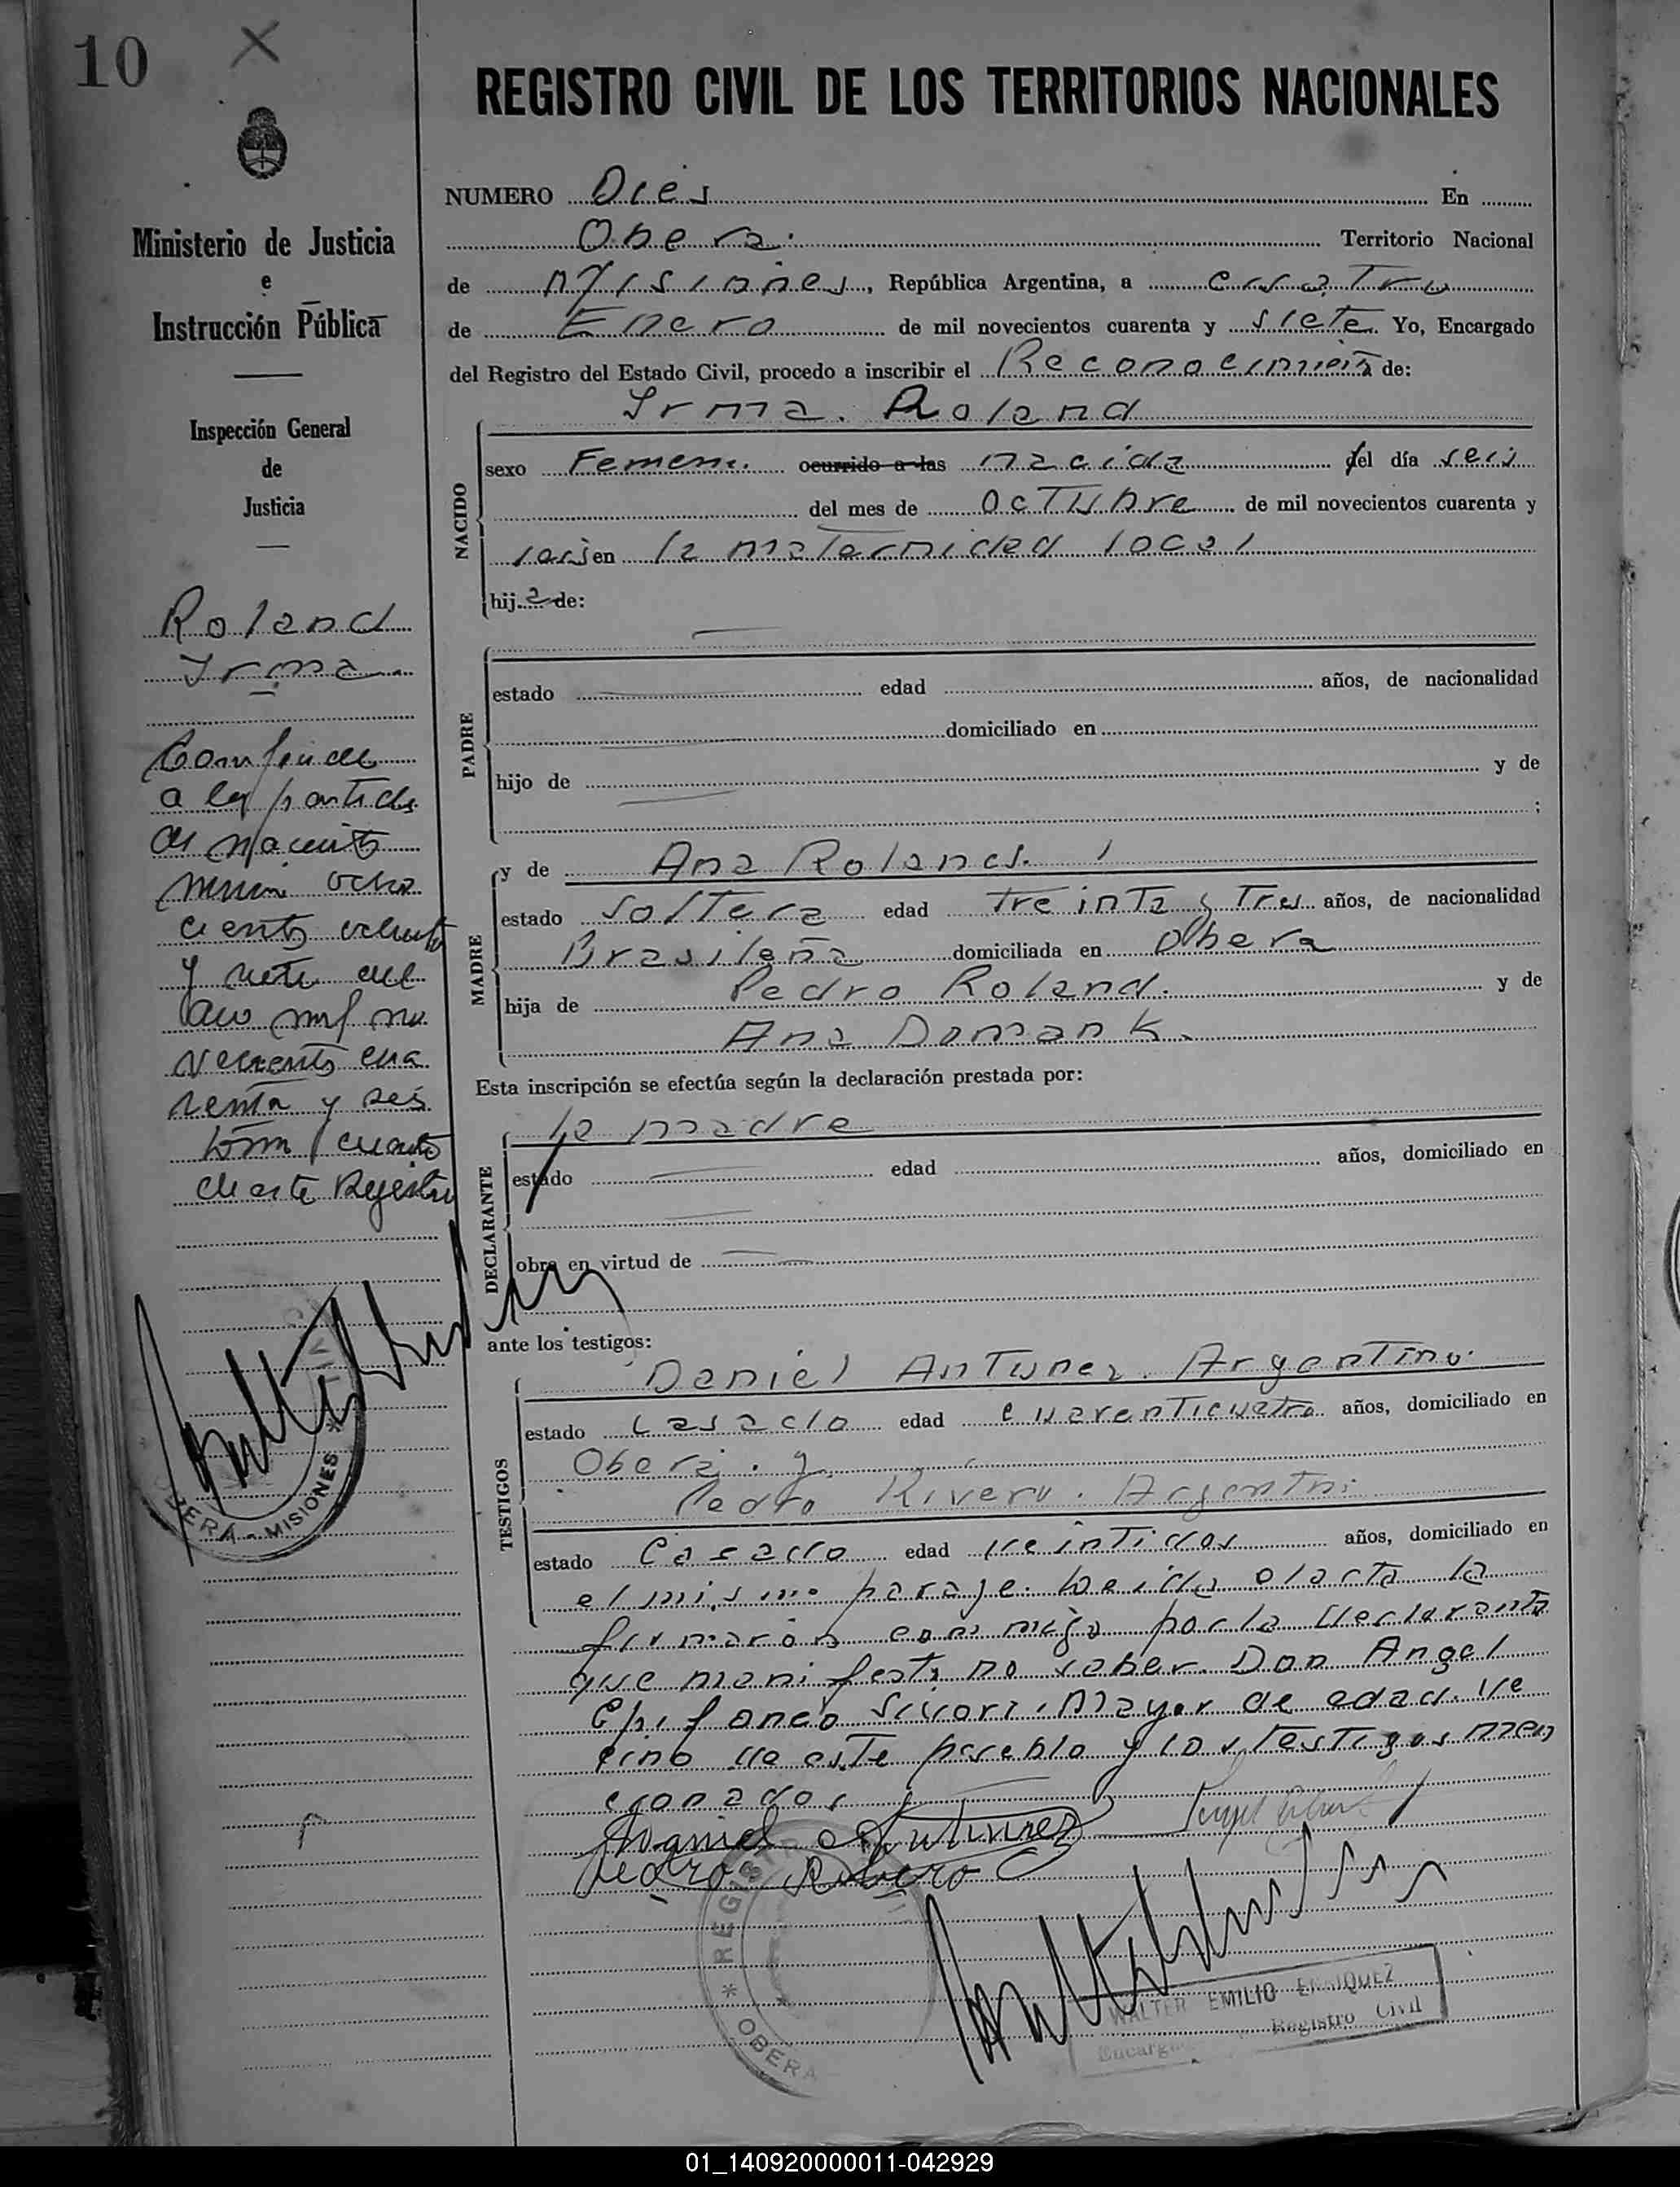 10 X
Ministerio de Justicia
e
Instrucción Pública
Inspección General
de
Justicia
Roland
Irma
a la partida
de
ochocientos
y siete del
mil no
vecientos cua
renta y seis
tomo cuarto
de este Registro
OBERA - MISIONES *
REGISTRO CIVIL DE LOS TERRITORIOS NACIONALES
NUMERO Dies En
Obera. Territorio Nacional
de Misiones, República Argentina, a cuatro
de Enero de mil novecientos cuarenta y siete. Yo, Encargado
del Registro del Estado Civil, procedo a inscribir el Reconocimiento de:
Irma. Roland
NACIDO
sexo Femeni. ocurrido a las nacida el día seis
del mes de octubre de mil novecientos cuarenta y
seis en la maternidad local
hija de:
PADRE
estado edad años, de nacionalidad
domiciliado en
hijo de y de
;
MADRE
y de Ana Roland.
estado soltera edad treinta y tres años, de nacionalidad
Brasileña domiciliada en Obera
hija de Pedro Roland. y de
Ana Domank.
Esta inscripción se efectúa según la declaración prestada por:
DECLARANTE
la madre
estado edad años, domiciliado en
obra en virtud de
ante los testigos:
TESTIGOS
Daniel Antunez. Argentino.
estado casado edad cuarenticuatro años, domiciliado en
Obera. y
Pedro Rivero. Argentin
estado casado edad veintidos años, domiciliado en
el mismo paraje. Leida el acta la
firmaron conmigo por la declarante
que manifesto no saber. Don Angel
Epifaneo Sivori, Mayor de edad. ve
cino de este pueblo y los testigos men
cionados
Daniel Antunez
Pedro Rivero
* REGIST
* OBERA
WALTER EMILIO ENRIQUEZ
Encarg Registro Civil
01_140920000011-042929